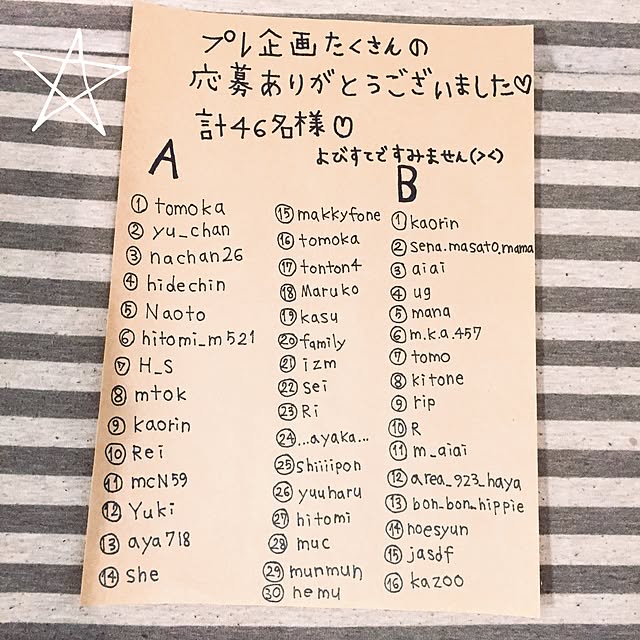 プレ企画たくさんの
応募ありがとうございました♡
計46名様♡
よびすてですみません(><)
A
① tomoka
② yu_chan
③ nachan26
④ hidechin
⑤ Naoto
⑥ hitomi_m521
⑦ H_S
⑧ mtok
⑨ kaorin
⑩ Rei
⑪ mcN59
⑫ Yuki
⑬ aya718
⑭ she
⑮ makkyfone
⑯ tomoka
⑰ tonton4
⑱ Maruko
⑲ kasu
⑳ family
㉑ izm
㉒ sei
㉓ Ri
㉔ ...ayaka...
㉕ shiiiipon
㉖ yuuharu
㉗ hitomi
㉘ muc
㉙ munmun
㉚ nemu
B
① kaorin
② sena.masato.mama
③ aiai
④ ug
⑤ mana
⑥ m.k.a.457
⑦ tomo
⑧ kitone
⑨ rip
⑩ R
⑪ m_aiai
⑫ area_923_haya
⑬ bon_bon_hippie
⑭ noesyun
⑮ jasdf
⑯ kazoo